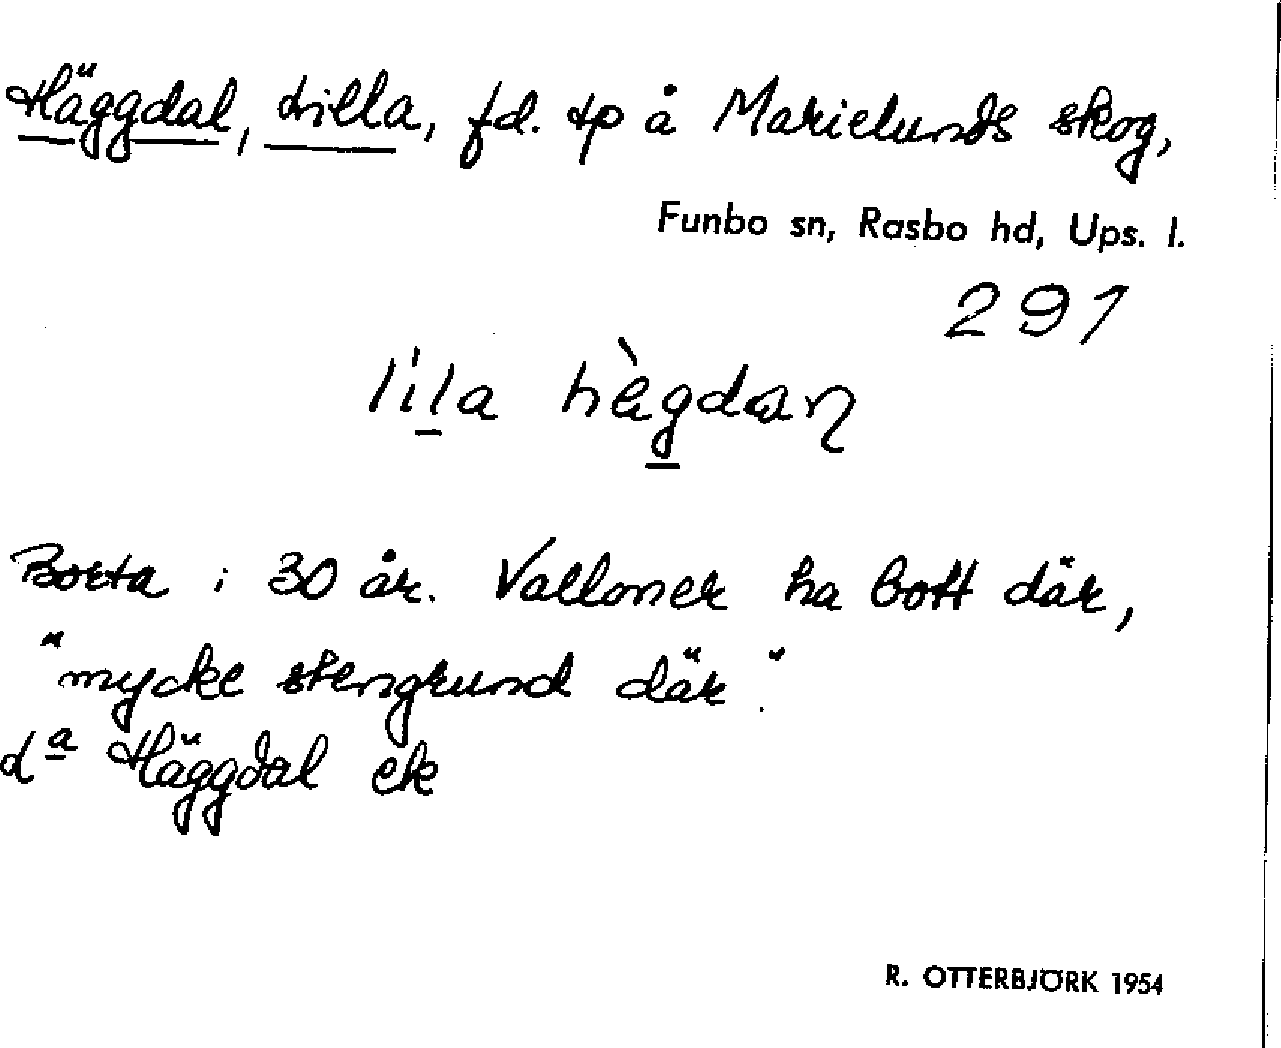 Häggdal, Lilla, fd. tp å Marielunds skog,
Funbo sn, Rasbo hd, Ups. l.
291
li̍l̠a hὲg̠dαɳ
Borta i 30 år. Valloner ha bott där,
"mycke stengrund där".
dª Häggdal ek
R. OTTERBJÖRK 1954